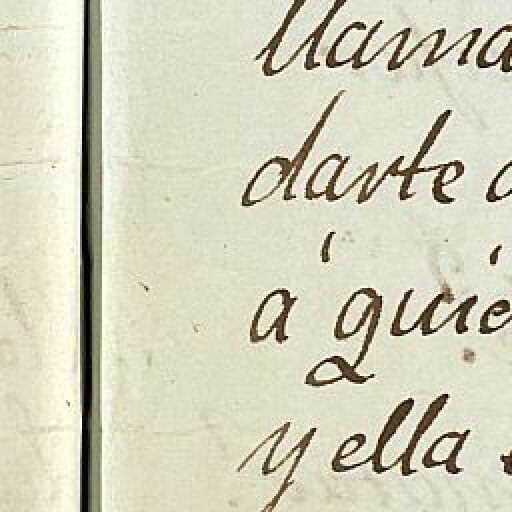 llama
darte
á quié
y ella